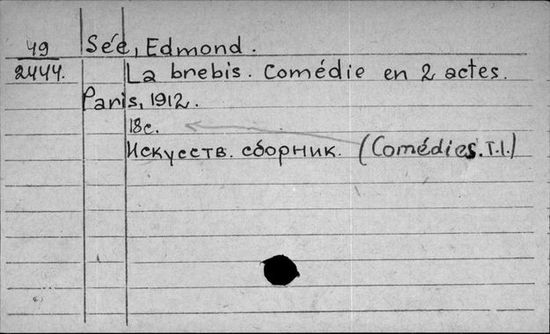 49
2444.
Sée, Edmond.
La brebis. Comédie en 2 actes.
Paris, 1912.
18с.
Искусств. сборник. (Comédies. T.I.)